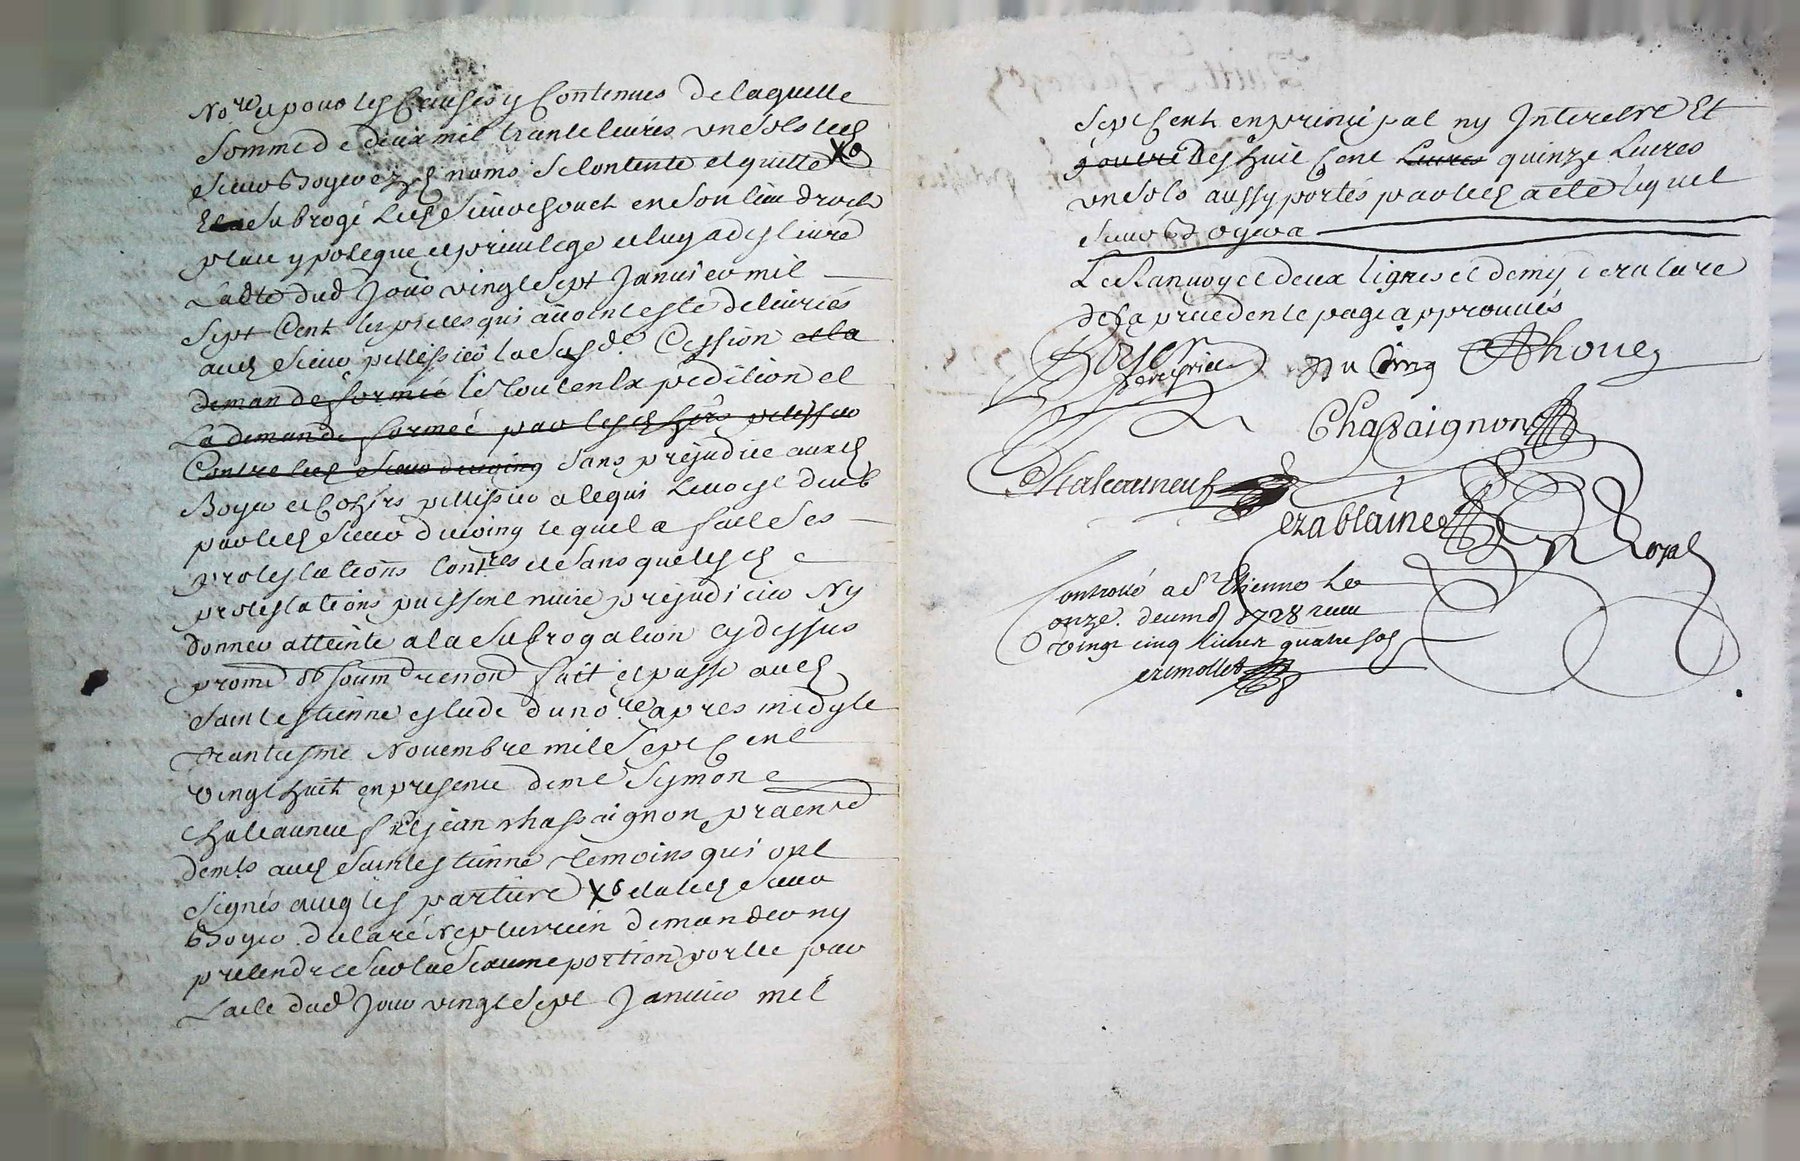 No.re et pour les Causes y Contenues de laquelle
Somme de deux mil trante livres un sols led
sieur Boyer ez d noms se Contente et quitte X
et a subrogé led sieur chouet en son lieu droit
place ypoteque et privilege et luy a deslivré
L'acte dud Jour vingt sept Janvier mil
Sept Cent les pieces qui avoint esté delivrées
aud sieur pellissier la susd.e Cession et la
demande formée le tout en Expedition et
La demande formée par lesd hers pelissier
Contre led sieur ducoing sans prejudice aud
Boyer et Cohers pellissier
par led sieur ducoing lequel a fait ses
protestations Contres et sans que lesd
protestations puissent nuire prejudicier Ny
donner atteinte a la subrogation cy dessus
prome ob soum renon fait et passé aud
Saint estienne estude du no.re apres midy le
trantiesme Novembre mil sept Cent
vingt huit en presence de me Symon
Chateauneuf et jean Chassaignon praend
demts aud saint estienne temoins qui ont
signés aveq les partiers X et a led sieur
Boyer declaré N'eplus rien demander ny
pretendre sur la sienne portion portée par
L'acte dud Jour vingt sept Janvier mil
Sept Cent en principal ny Interetre Et
quinze Livres
un sols aussy portés par led acte lequel
sieur Boyer a
Le Ranvoy et deux lignes et demy de rature
de la precedente page approuvés
Du Coing Chouet
Chassaignon
Chateauneuf
ezablaine
Royal
Controllé a St Etienne Le
onze decemb 1728 receu
vingt cinq livres quatre sols
ezemollet